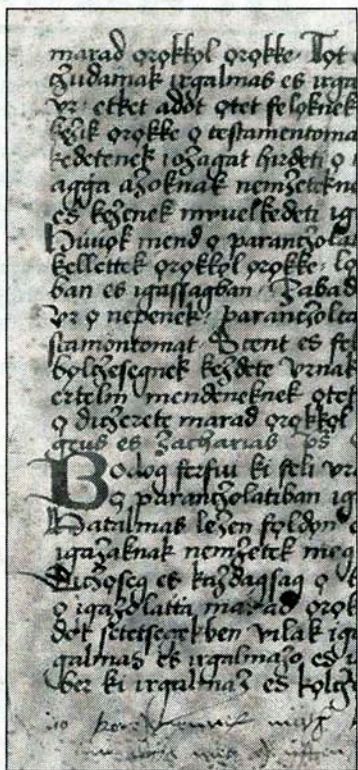 marad ọrọkkọl ọrọkke · Tọt c
cȝudainak irgalmas es irga
vr · etket adot ọtet felọknek
leȝik ọrọkke ọ testamentoma
kedetenek ioȝagat hirdeti ọ
agga aȝoknak nemȝetekne
es keȝenek mivelkedeti ig
Hivọk mend ọ parancȝola
kellettek ọrọkkọl ọrọkke · lo
ban es igassagban · Sabad
vr ọ nepenek · parancȝolta
stamontomat · Scent es fe
bọlcȝesegnek keȝdete vrnak
ertelm mendeneknek ọtet
ọ dicȝerete marad ọrọkkọl
geus es Zacharias ps
Bodog ferfiu ki feli vr
Ọ parancȝolatiban ig
Hatalmas leȝen fọldọn
igaȝaknak nemȝetek meg
Dicȝọseg es kaȝdagsag ọ
ọ igaȝolatta marad ọrọk
dot setetsegekben vilak ig
galmas es irgalmaȝo es i
ber ki irgalmaȝ es kọlcȝ